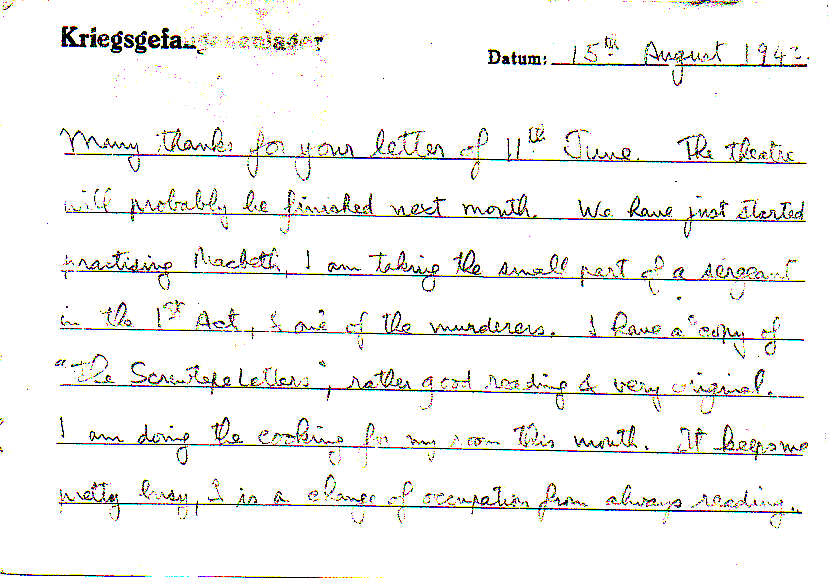 Kriegsgefangenenlager
Datum: 15th August 1943.
Many thanks for your letter of 11th June. The theatre
will probably be finished next month. We have just started
practising Macbeth, I am taking the small part of a sergeant
in the 1st Act, & one of the murderers. I have a copy of
"The Screwtape Letters", rather good reading & very original.
I am doing the cooking for my room this month. It keeps me
pretty busy, & is a change of occupation from always reading.